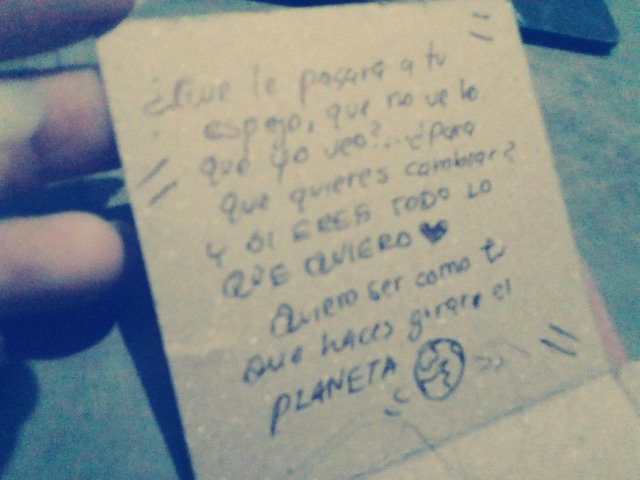 ¿Que le pasara a tu
espejo, que no ve lo
que yo veo?... ¿Para
que quieres cambiar?
Y SI ERES TODO LO
QUE QUIERO
Quiero ser como tu
que haces girar el
PLANETA